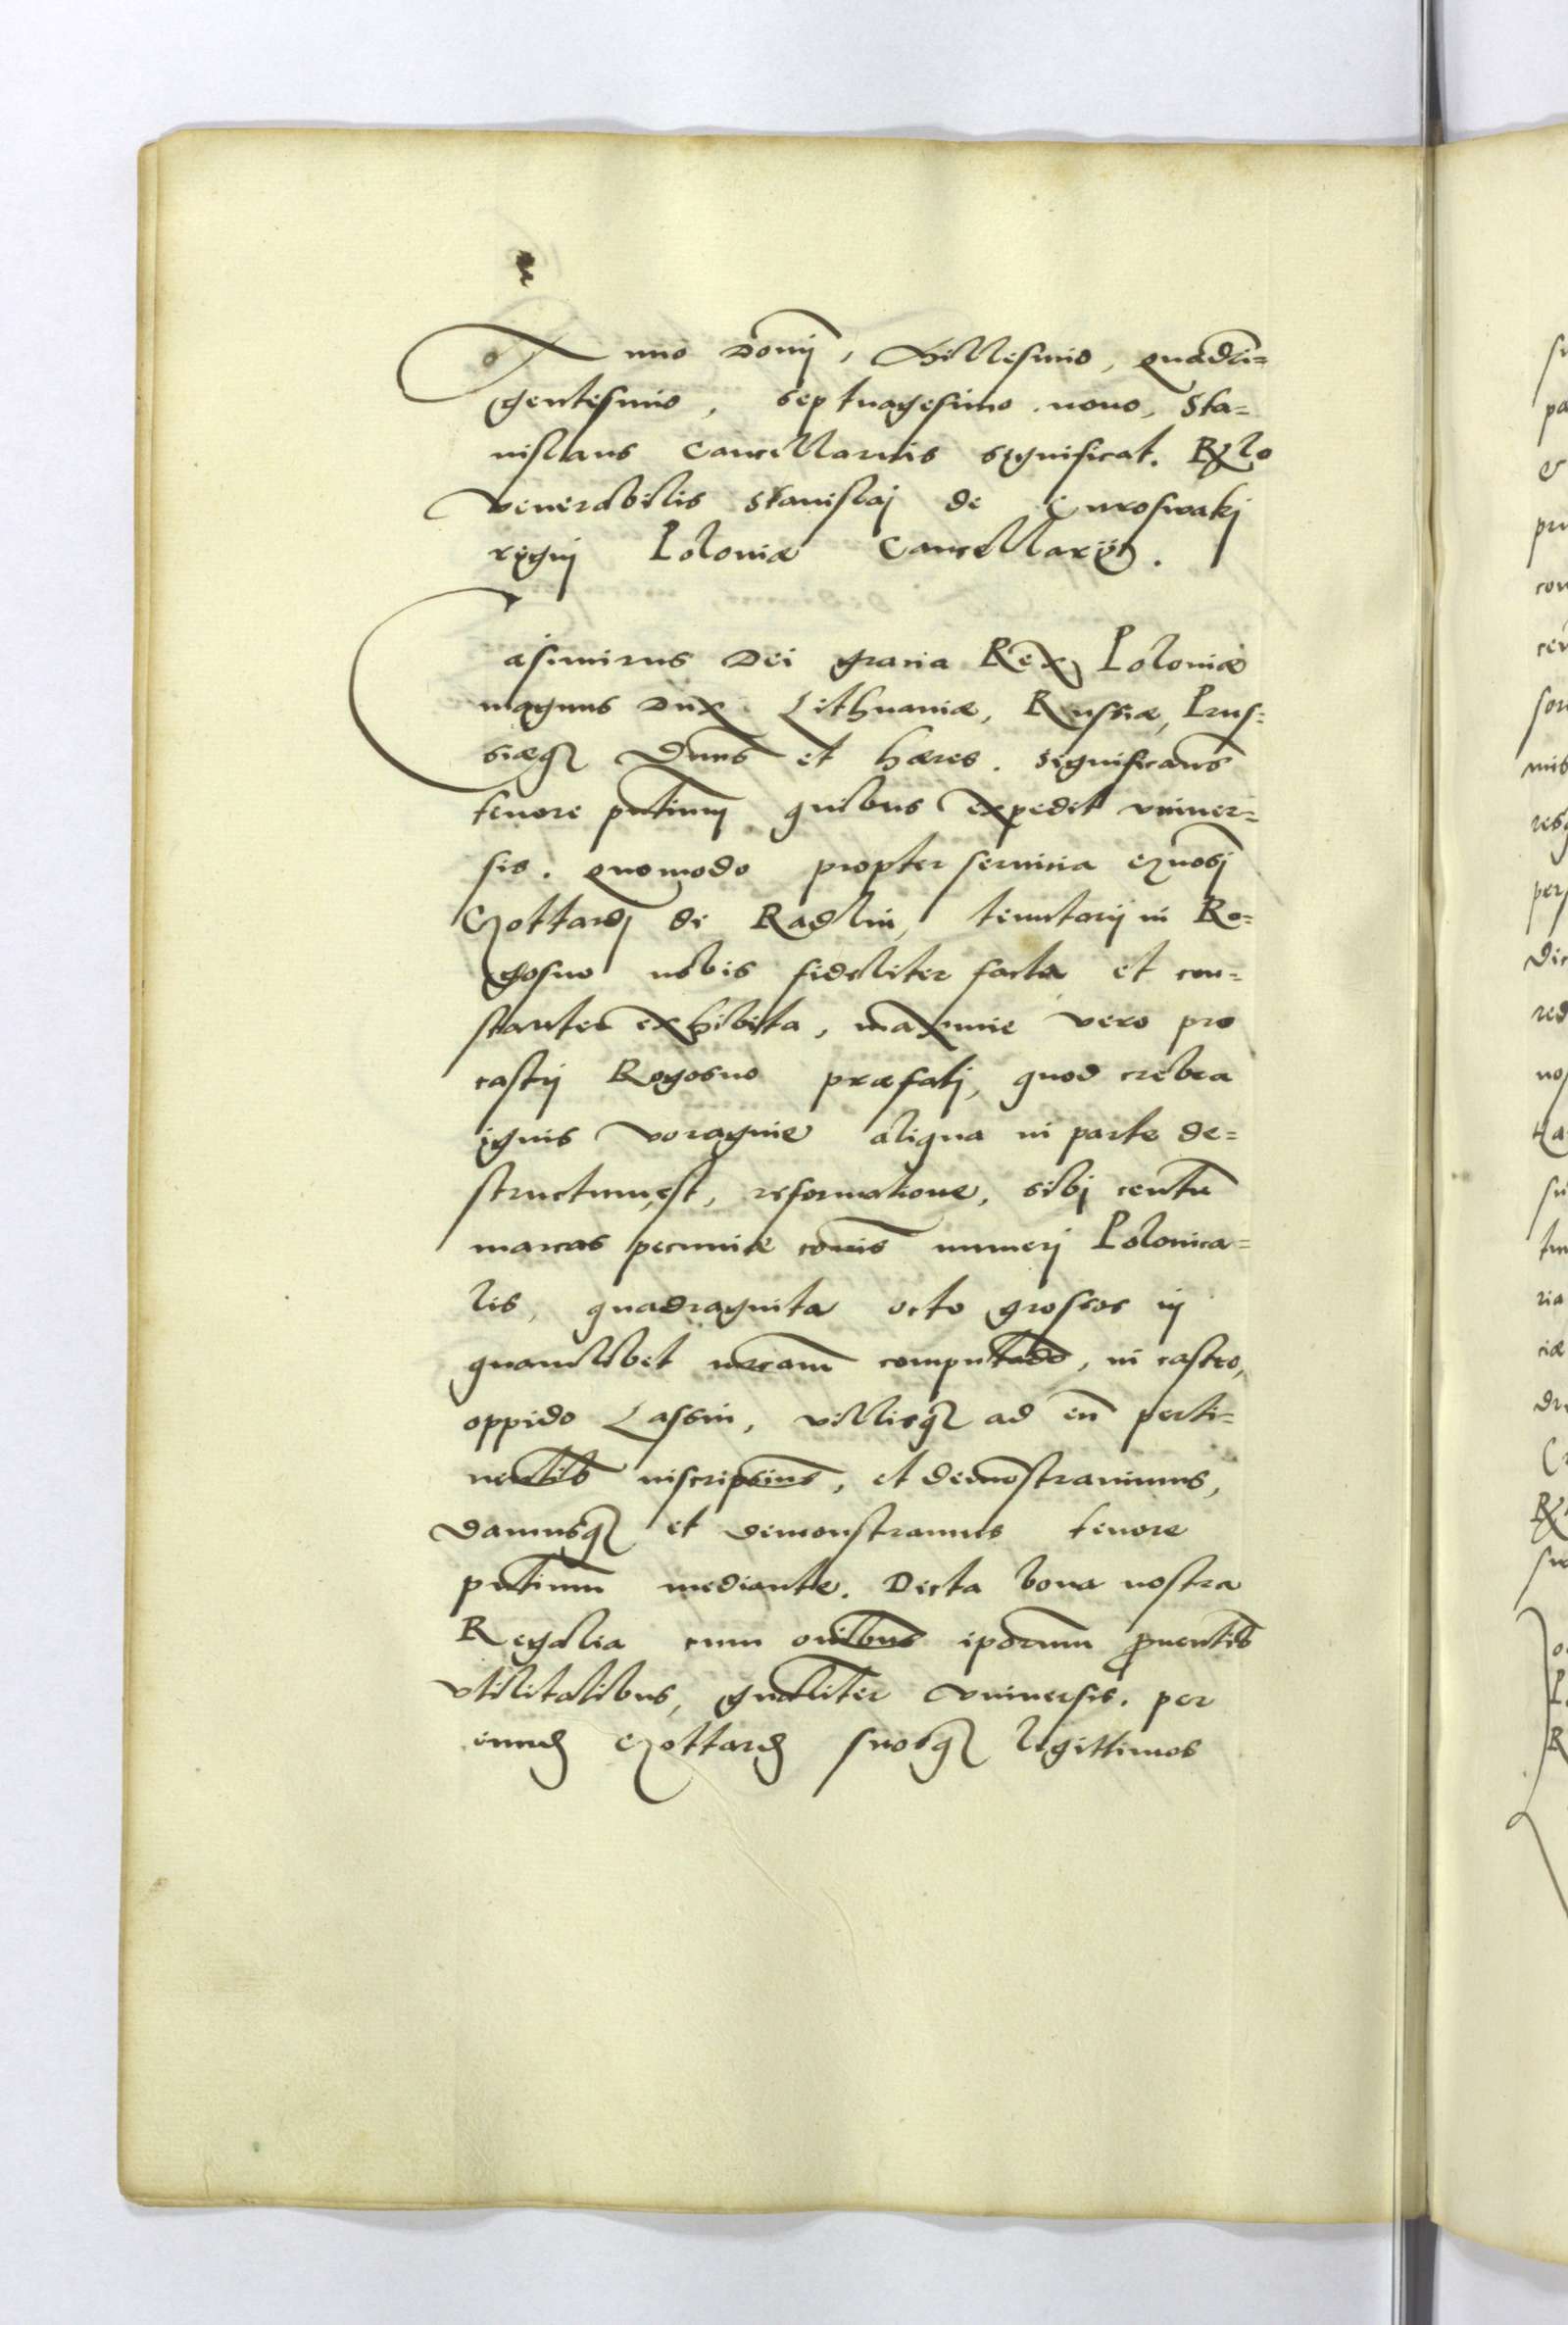 Anno Domij, Millesimo, quadri=
gentesimo, septuagesimo nono, Sta=
nislaus Cancellarius significat. Rlo
Venerabilis Stanislaj de Curoswakj
regnj Poloniæ Cancellarij.
Casimirus Dei gracia Rex Poloniæ
magnus Dux Lithuaniæ, Russiæ, Prus=
siæq Dnns et hæres. Significams
tenore pntium quibus expedit vniuer=
sis. quomodo propter seruicia gnosj
Gottardj de Radlin, tenutarij in Ro=
gosno nobis fideliter facta et con=
stanter exhibita, maxime vero pro
castrj Rogosno præfatj, quod crebra
ignis voragine aliqua in parte de=
structum est, reformatione, sibj centu
marcas pecuniæ cõmis numerj Polonica=
lis, quadraginta octo grossos in
quamlibet mrcam computado, in castro,
oppido Lassin, villisq ad eũ perti=
nentib inscripsims, et demõstrauimus,
damusq et demonstramus tenore
pntium mediante. Dicta bona nostra
Regalia cum oĩbus ipsorum puentib
vtilitatibus, qualiter vniuersis. per
eund Gottard suosq legittimos